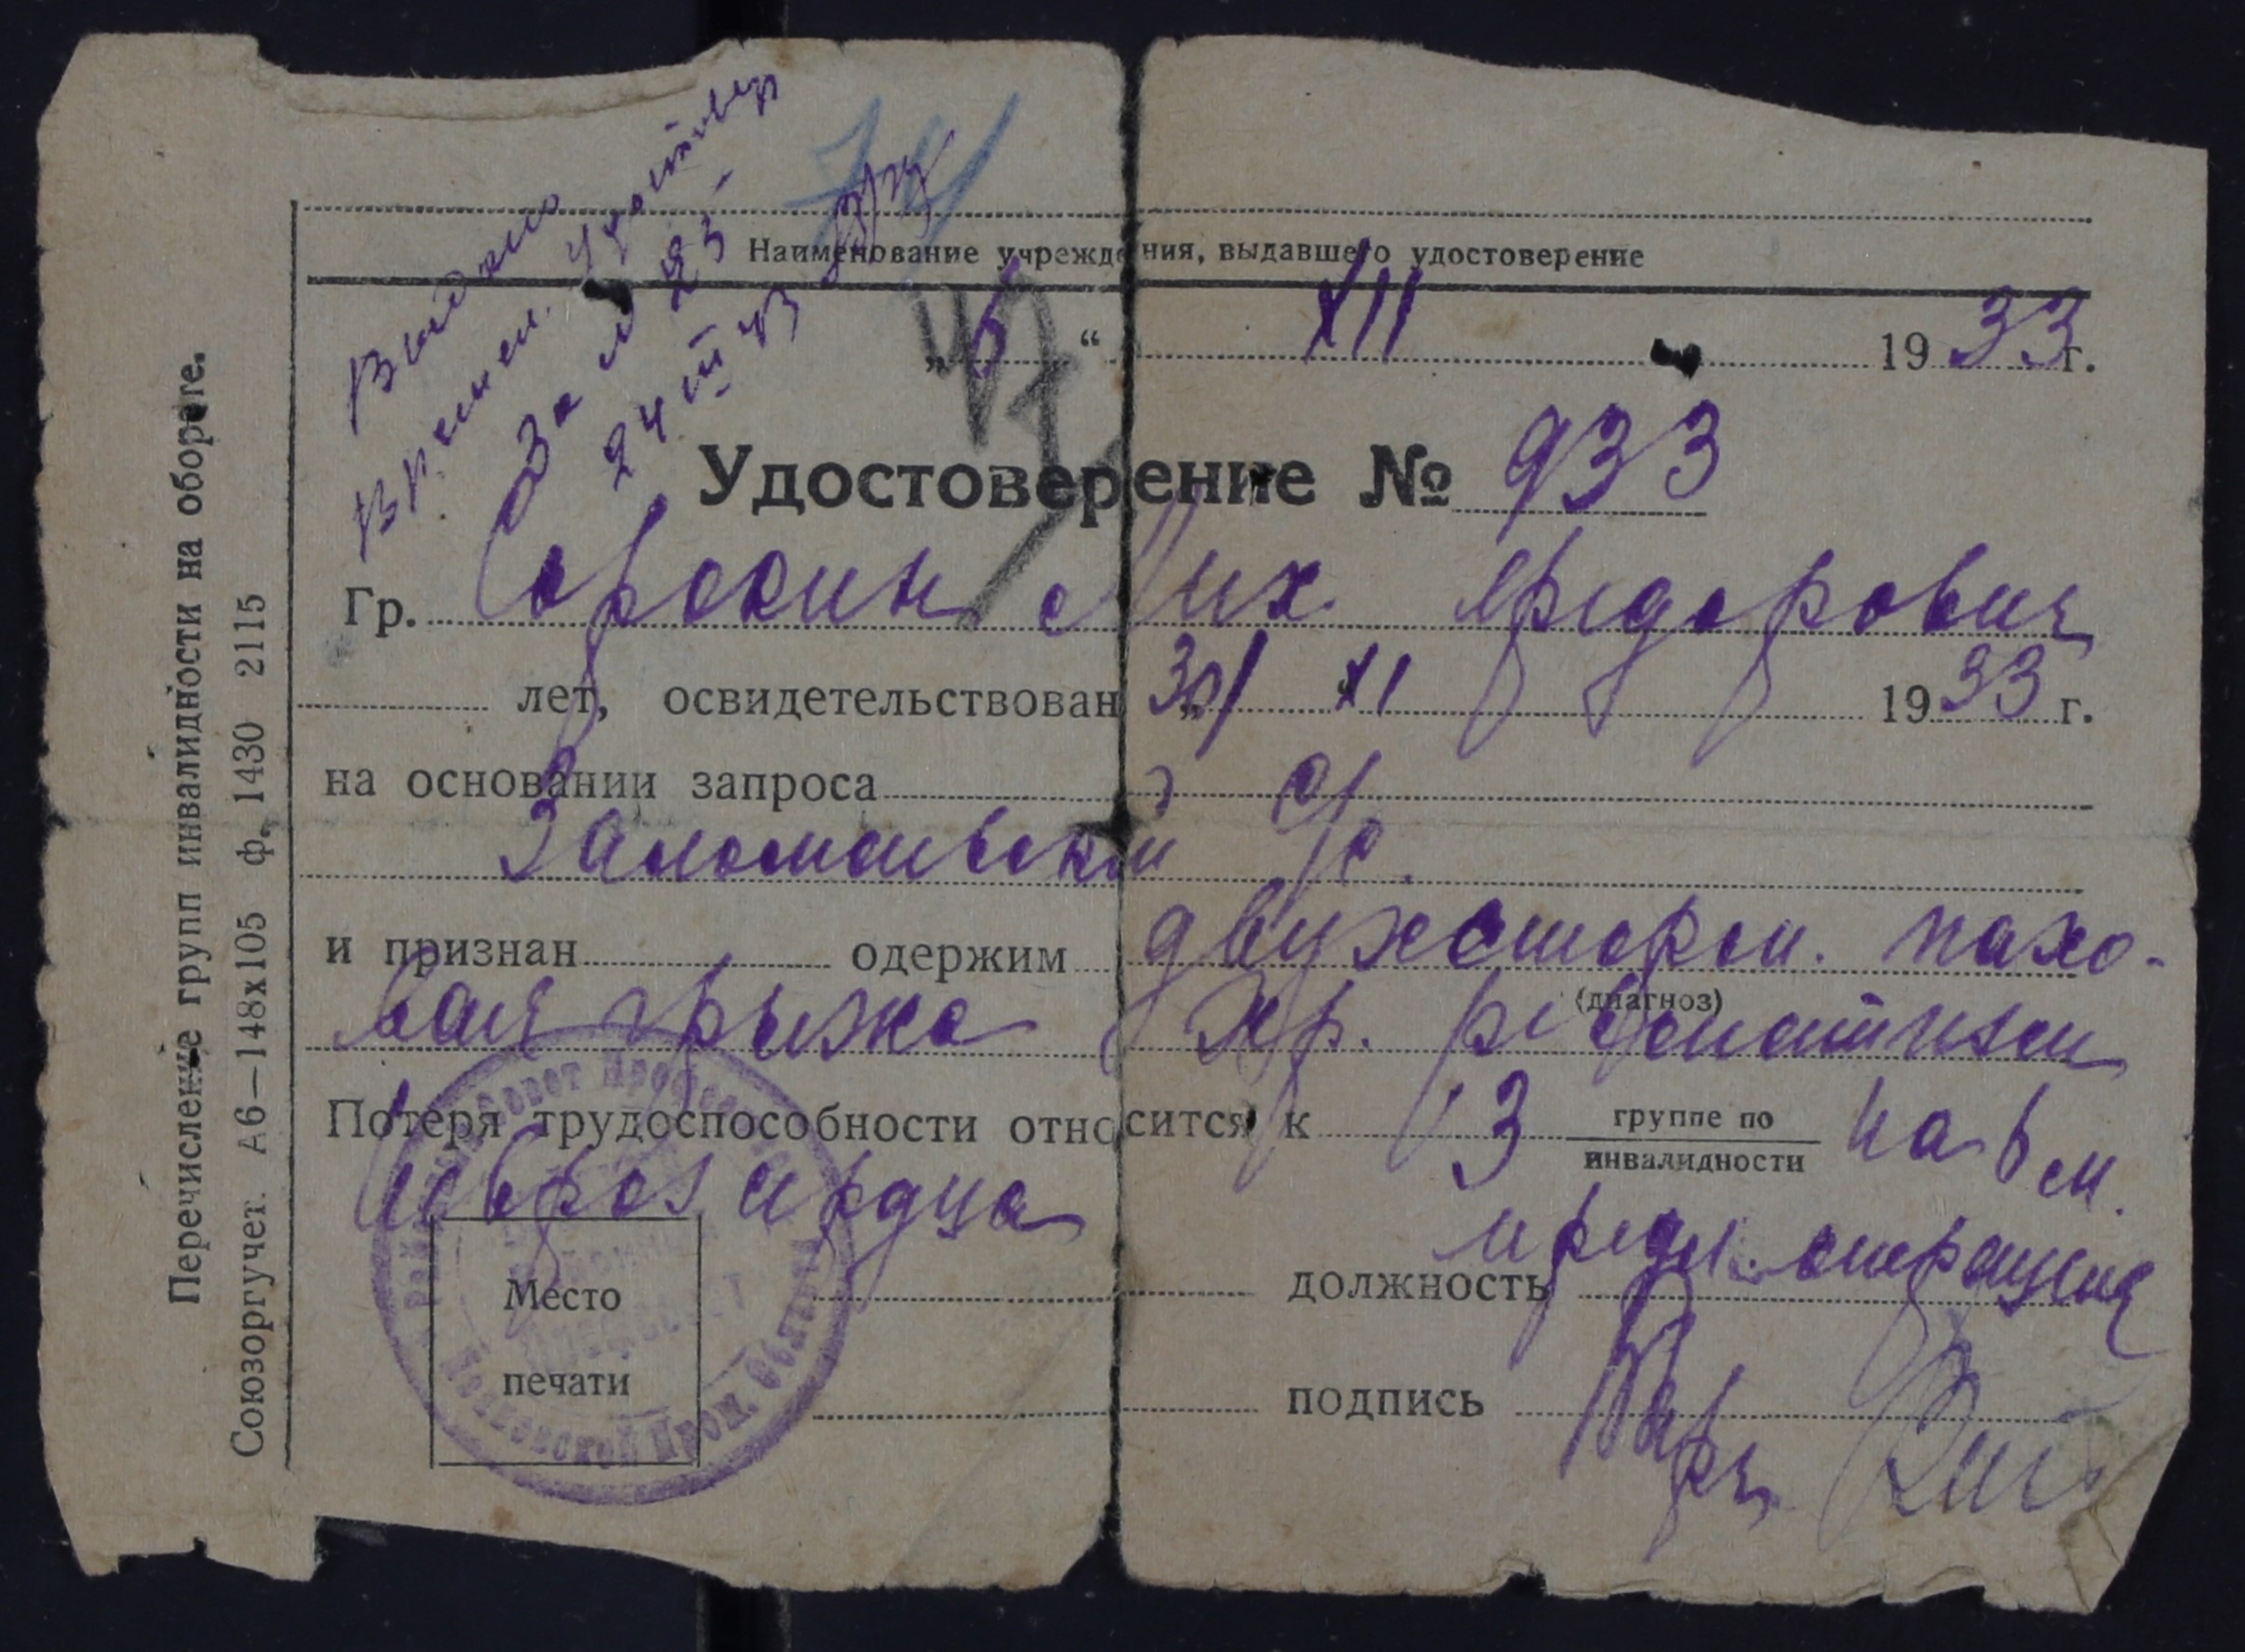 Выдано
времен. удостовер
За № 25
24 III 43
Наименование учреждения, выдавшего удостоверение
„5“ XII 1933 г.
Удостоверение № 933
Гр. Сорокин Мих. Федорович
лет, освидетельствован „30 XI 1933 г.
на основании запроса
с/с.
и признан одержим двухсторон. пахо-
(диагноз)
вая грыжа хр. ревматизм
Потеря трудоспособности относится к 3 группе по инвалидности на 6 м.
невроз сердца
предл. операция
должность
подпись
Место
печати
Перечисление групп инвалидности на обороте.
Союзоргучет. А6—148х105 ф. 1430 2115